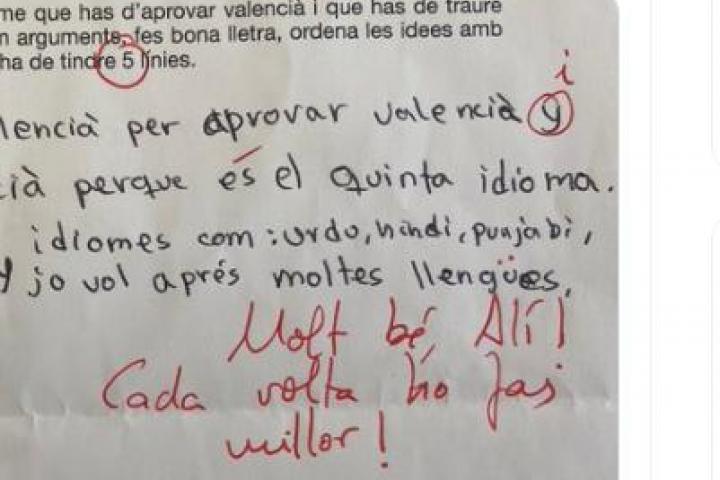 me que has d'aprovar valencià i que has de traure
n arguments, fes bona lletra, ordena les idees amb
ha de tindre 5 línies.
i
lencià per aprovar valencià y
ià perque és el quinta idioma.
idiomes com: urdo, hindi, punjabi,
y jo vol aprés moltes llengües.
Molt bé, Alí!
Cada volta ho fas
millor!